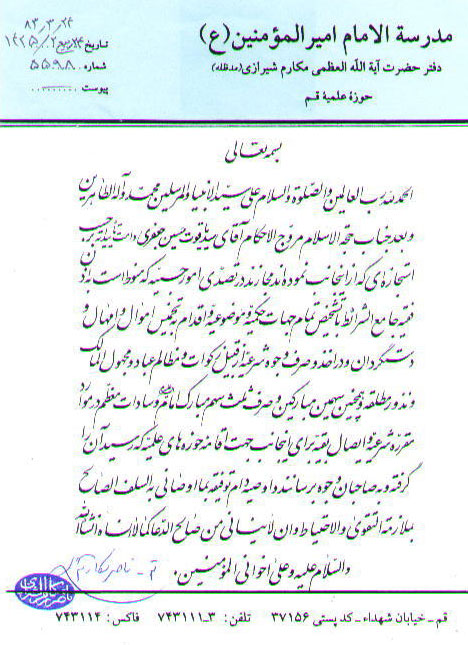 مدرسة الامام امیرالمؤمنین (ع)
دفتر حضرت آیة الله العظمی مکارم شیرازی (مدظله)
حوزهٔ علمیهٔ قم
۸۳ر۳ر۲۴
تاریخ ۲۴ ربیع۲ / ۱۴۲۵
شماره ۵۵۹۸
پیوست ..........
بسمه تعالی
الحمدلله رب العالمین والصلوة والسلام علی سیدالانبیاء والمرسلین محمد وآله الطاهرین
و بعد جناب حجة الاسلام مروج الاحکام آقای سید یاقوت حسین جعفری دامت تأییداته بر حسب
استجازه‌ای که از اینجانب نموده‌اند مجازند در تصدی امور حسبیه که منوط است باذن
فقیه جامع الشرائط با تشخیص تمام جهات حکمیه و موضوعیه و اقدام به تخمیس اموال و امهال و
دستگردان و در اخذ و صرف وجوه شرعیه از قبیل زکوات و مظالم عباد و مجهول المالک
و نذور مطلقه و همچنین سهمین مبارکین و صرف ثلث سهم مبارک امام (ع) و سادات معظم در موارد
مقرره شرعیه و ایصال بقیه برای اینجانب جهت اقامه حوزه‌های علمیه که رسید آن را
گرفته و به صاحبان وجوه برسانند و اوصیه دام توفیقه بما اوصانی به السلف الصالح
بملازمة التقوی والاحتیاط وان لاینسانی من صالح الدعا کما لاانساه انشاالله
والسلام علیه وعلی اخوانی المؤمنین.
قم - ناصر مکارم
قم ـ خیابان شهداء ـ کد پستی ۳۷۱۵۶ تلفن: ۳ـ۷۴۳۱۱۱ فاکس: ۷۴۳۱۱۴